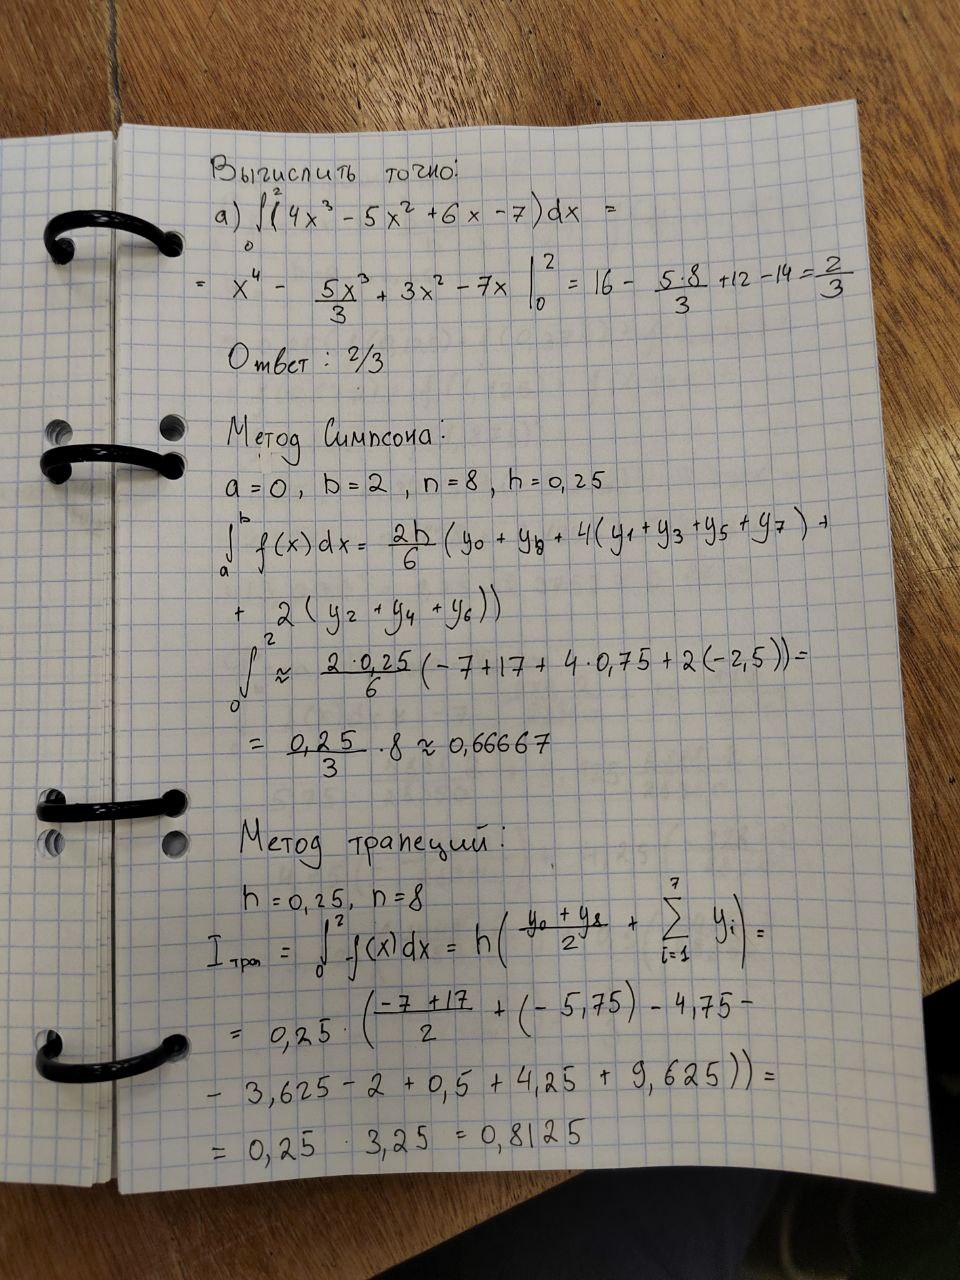 Вычислить точно:
а) ∫₀² (4x³ - 5x² + 6x - 7) dx =
= x⁴ - 5x³/3 + 3x² - 7x |₀² = 16 - 5·8/3 + 12 - 14 = 2/3
Ответ: 2/3
Метод Симпсона:
a = 0, b = 2, n = 8, h = 0,25
∫ₐᵇ f(x) dx = 2h/6 (y₀ + y₈ + 4(y₁ + y₃ + y₅ + y₇) +
+ 2(y₂ + y₄ + y₆))
∫₀² ≈ 2·0,25/6 (-7 + 17 + 4·0,75 + 2(-2,5)) =
= 0,25/3 · 8 ≈ 0,66667
Метод трапеций:
h = 0,25, n = 8
I трап = ∫₀² f(x) dx = h( (y₀ + y₈)/2 + ∑ᵢ₌₁⁷ yᵢ) =
= 0,25 · ( (-7 + 17)/2 + (-5,75) - 4,75 -
- 3,625 - 2 + 0,5 + 4,25 + 9,625)) =
= 0,25 · 3,25 = 0,8125